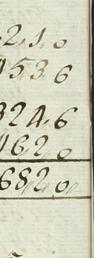 2,1,0
453.6
324.6
462 0
682,0